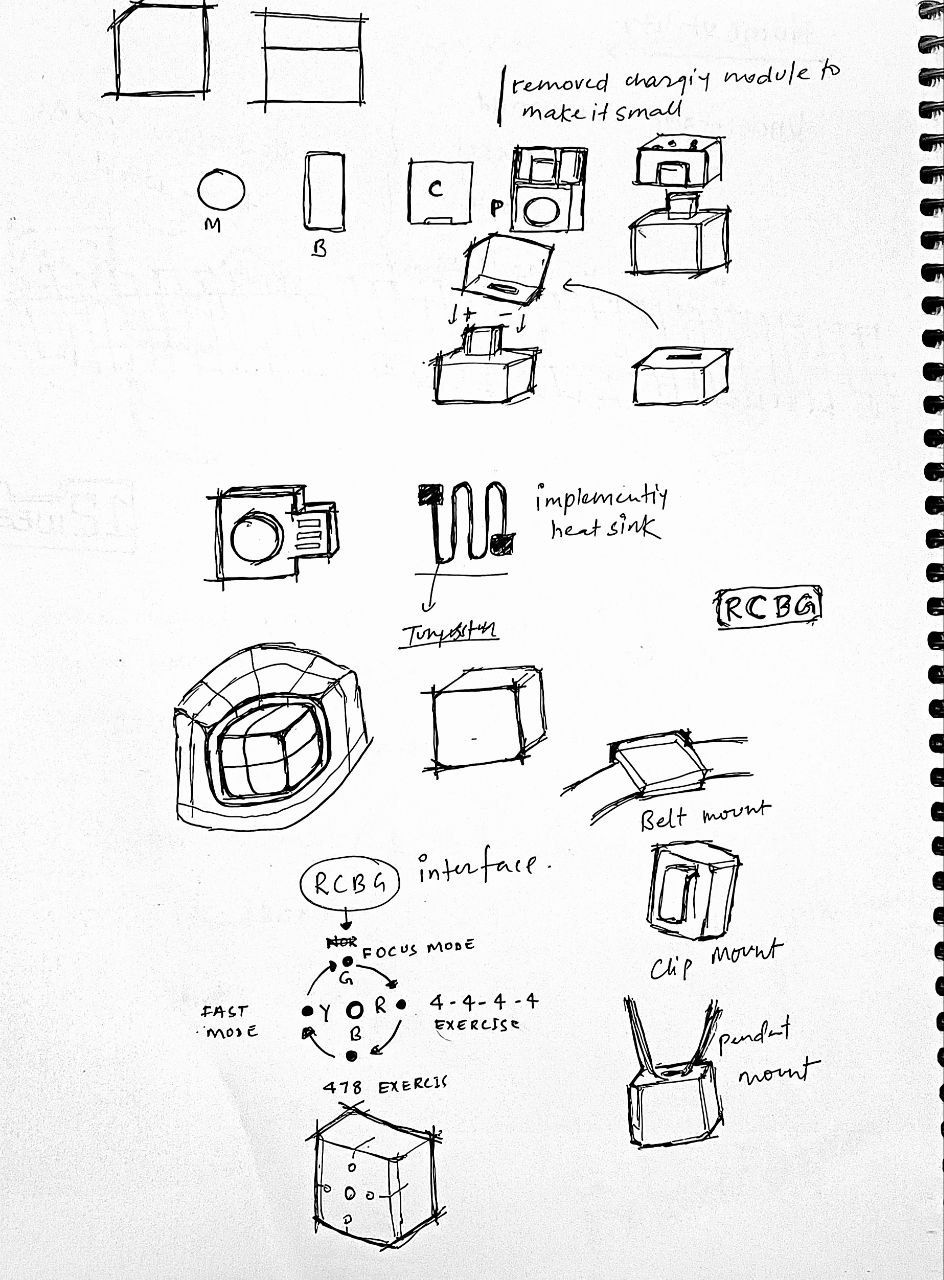 removed chargiy module to
make it small
M
B
C
P
+ -
implementiy
heat sink
RCBG
Belt mount
RCBG interface.
FOCUS MODE
G
FAST
MODE
Y
R
4-4-4-4
EXERCISE
B
478 EXERCIS
Clip Mount
pendent
mount